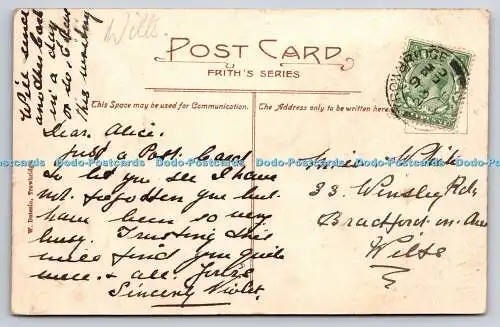 Will send
another card
in a day
or so,
this
Wilts.
POST CARD
FRITH'S SERIES
This Space may be used for Communication.
The Address only to be written here.
TROWBRIDGE
W. Dotesio, Trowbridge
Dear Alice.
Just a Post Card
to let you see I have
not forgotten you but
have been so very
busy. Trusting this
will find you quite
well & all. Yours
Sincerely Violet.
Miss A White
33 Winsley Rd,
Bradford-on-Avon
Wilts
Dodo-Postcards Dodo-Postcards Dodo-Postcards Dodo-Postcards Dodo-Postcards Dodo-Postcards